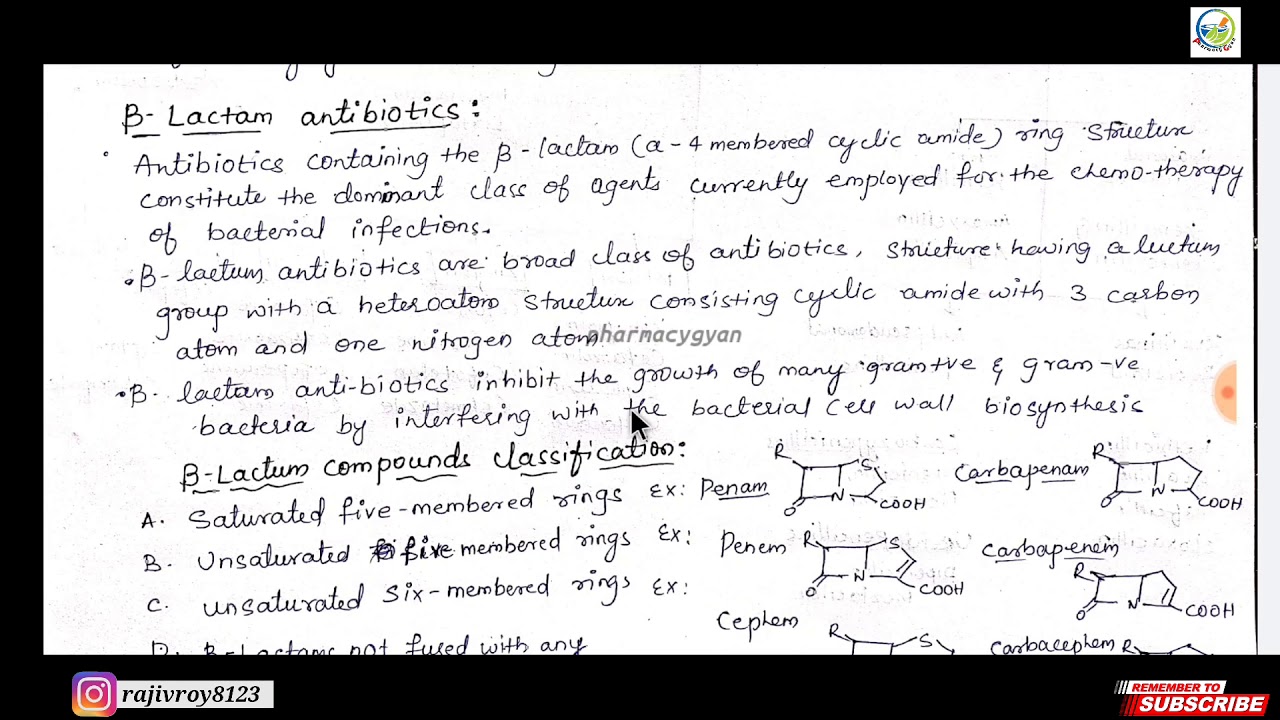 β- Lactam antibiotics:
Antibiotics containing the β-lactam (a-4 membered cyclic amide) ring structure
constitute the dominant class of agents currently employed for the chemo-therapy
of bacterial infections.
• β-lactum antibiotics are broad class of antibiotics, structure having a luctum
group with a heteroatom structure consisting cyclic amide with 3 carbon
atom and one nitrogen atom.
pharmacygyan
• β- lactam anti-biotics inhibit the growth of many gram+ve & gram-ve
bacteria by interfering with the bacterial cell wall biosynthesis
β-Lactum compounds classification:
A. Saturated five-membered rings Ex: Penam
R S N O COOH
Carbapenam
R N O COOH
B. Unsaturated five membered rings Ex: Penem
R S N O COOH
Carbapenem
R N O COOH
C. unsaturated six-membered rings Ex:
Cephem
R S
Carbacephem
R
D. β-Lactams not fused with any
rajivroy8123
REMEMBER TO
SUBSCRIBE